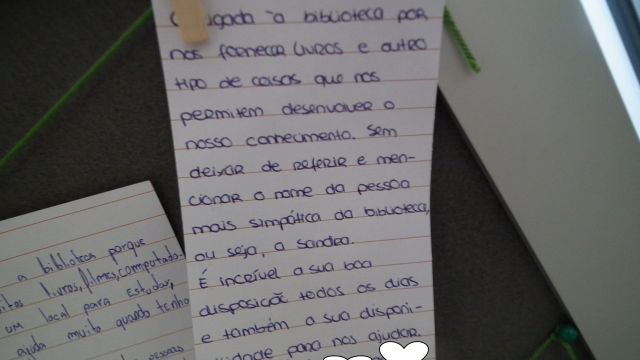 à biblioteca por
nos fornecer livros e outro
tipo de coisas que nos
permitem desenvolver o
nosso conhecimento. Sem
deixar de referir e men-
cionar o nome da pessoa
mais simpática da biblioteca,
ou seja, a Sandra.
É incrível a sua boa
disposição todos os dias
e também a sua disponi-
para nos ajudar.
a biblioteca porque
livros, filmes, computado-
um local para estudar,
ajuda muito quando tenho